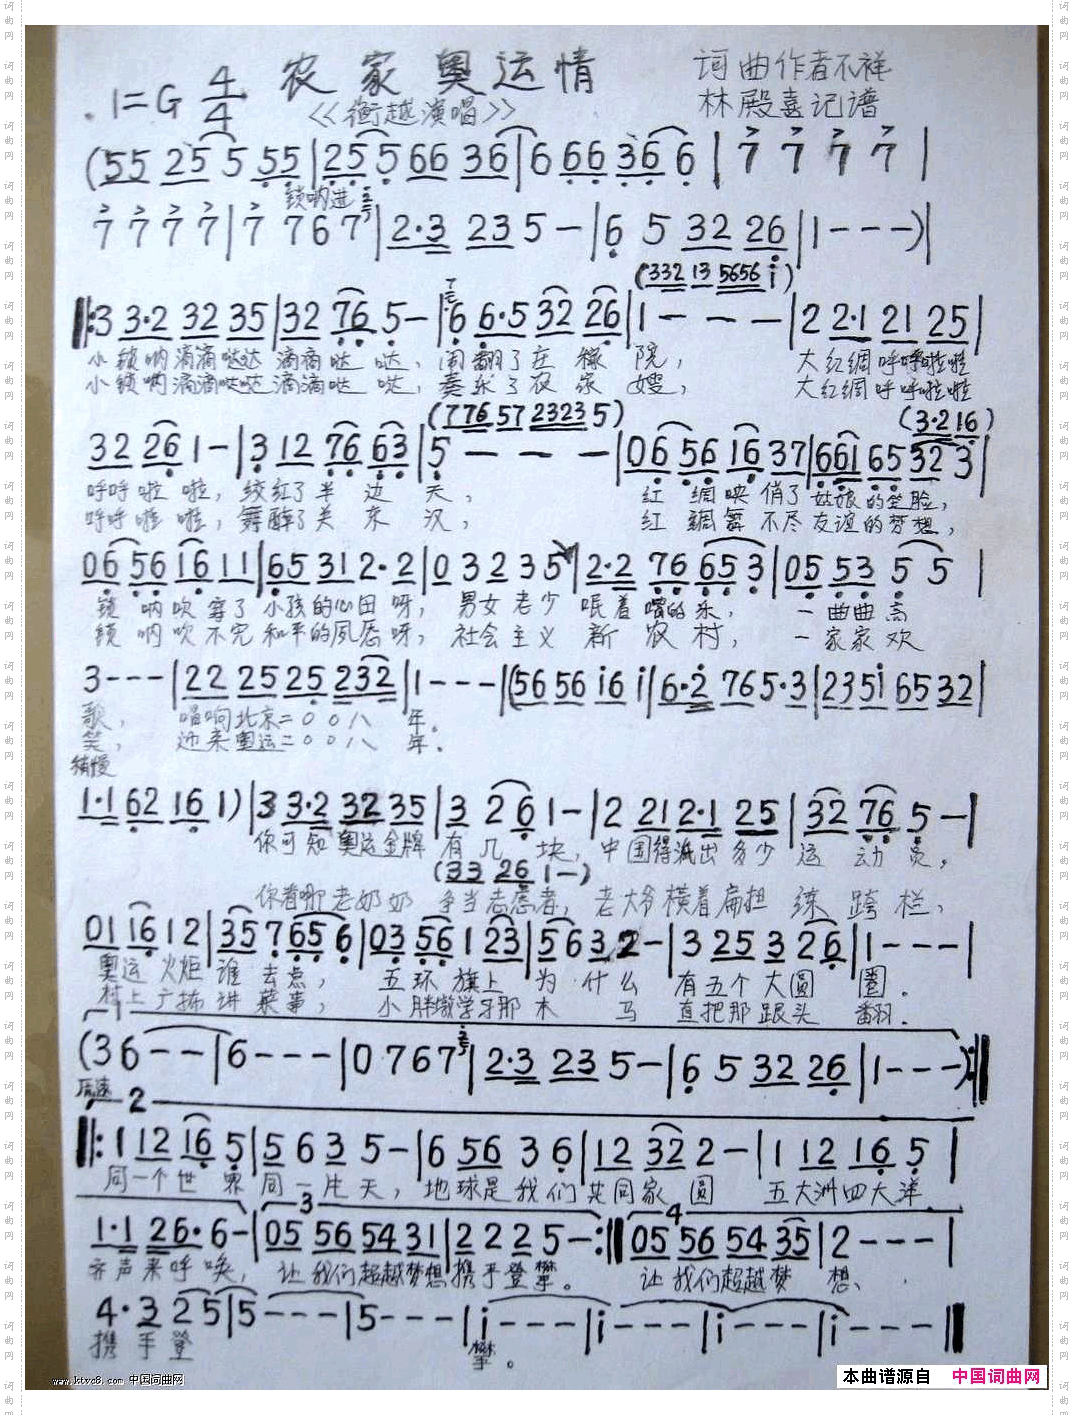 农家奥运情
1=G 4/4
《衡越演唱》
词曲作者不祥
林殿喜记谱
(55 25 5 55|25 5 66 36|6 66 36 6|7 7 7 7|
锁呐进
7 7 7 7|7 7 6 7|2·3 23 5 -|6 5 32 26|1 - - -)|
(332 13 5656 i)
‖:3 3·2 32 35|32 76 5 -|6 6·5 32 26|1 - - -|2 2·1 21 25|
小锁呐滴滴哒哒滴滴哒哒,闹翻了庄稼院,大红绸呼呼啦啦
小锁呐滴滴哒哒滴滴哒哒,奏乐了农家嫂,大红绸呼呼啦啦
(776 57 2323 5) (3·2 16)
32 26 1 -|3 12 76 63|5 - - -|06 56 16 37|661 65 32 3|
呼呼啦啦,绞红了半边天,红绸映俏了姑娘的笑脸,
呼呼啦啦,舞醉了关东汉,红绸舞不尽友谊的梦想,
06 56 16 11|65 31 2·2|0 3 2 3 5|2·2 76 65 3|05 53 5 5|
锁呐吹穿了小孩的心田呀,男女老少眠着唱的乐,一曲曲高
锁呐吹不完和平的夙愿呀,社会主义新农村,一家家欢
3 - - -|22 25 25 232|1 - - -|(56 56 i6 i|6·2 76 5·3|235i 65 32|
歌,唱响北京二00八年。
笑,迎来奥运二00八年.
稍慢
1·1 62 16 1)|3 3·2 32 35|3 2 6 1 -|2 21 2·1 25|32 76 5 -|
你可知奥运金牌有几块,中国得派出多少运动员,
(33 26 1 -)
你看哪老奶奶争当志愿者,老大爷横着扁担练跨栏,
01 16 1 2|35 7 65 6|03 56 1 23|5 6 3 2 -|3 25 3 26|1 - - -|
奥运火炬谁去点,五环旗上为什么有五个大圆圈.
村上广播讲英事,小胖墩学牙那木马直把那跟头翻.
1
(3 6 - -|6 - - -|0 7 6 7|2·3 23 5 -|6 5 32 26|1 - - -):‖
原速
2
‖:1 12 16 5|5 6 3 5 -|6 56 3 6|12 32 2 -|1 12 16 5|
同一个世界同一片天,地球是我们共同家圆五大洲四大洋
3 4
1·1 26· 6 -|05 56 54 31|2 2 2 5 -:‖05 56 54 35|2 - - -|
齐声来呼唤,让我们超越梦想携手登攀。让我们超越梦想、
4·3 2 5|5 - - -|5 - - -|i - - -|i - - -|i - - -|i - - -‖
携手登攀。
www.ktvc8.com 中国词曲网
本曲谱源自 中国词曲网